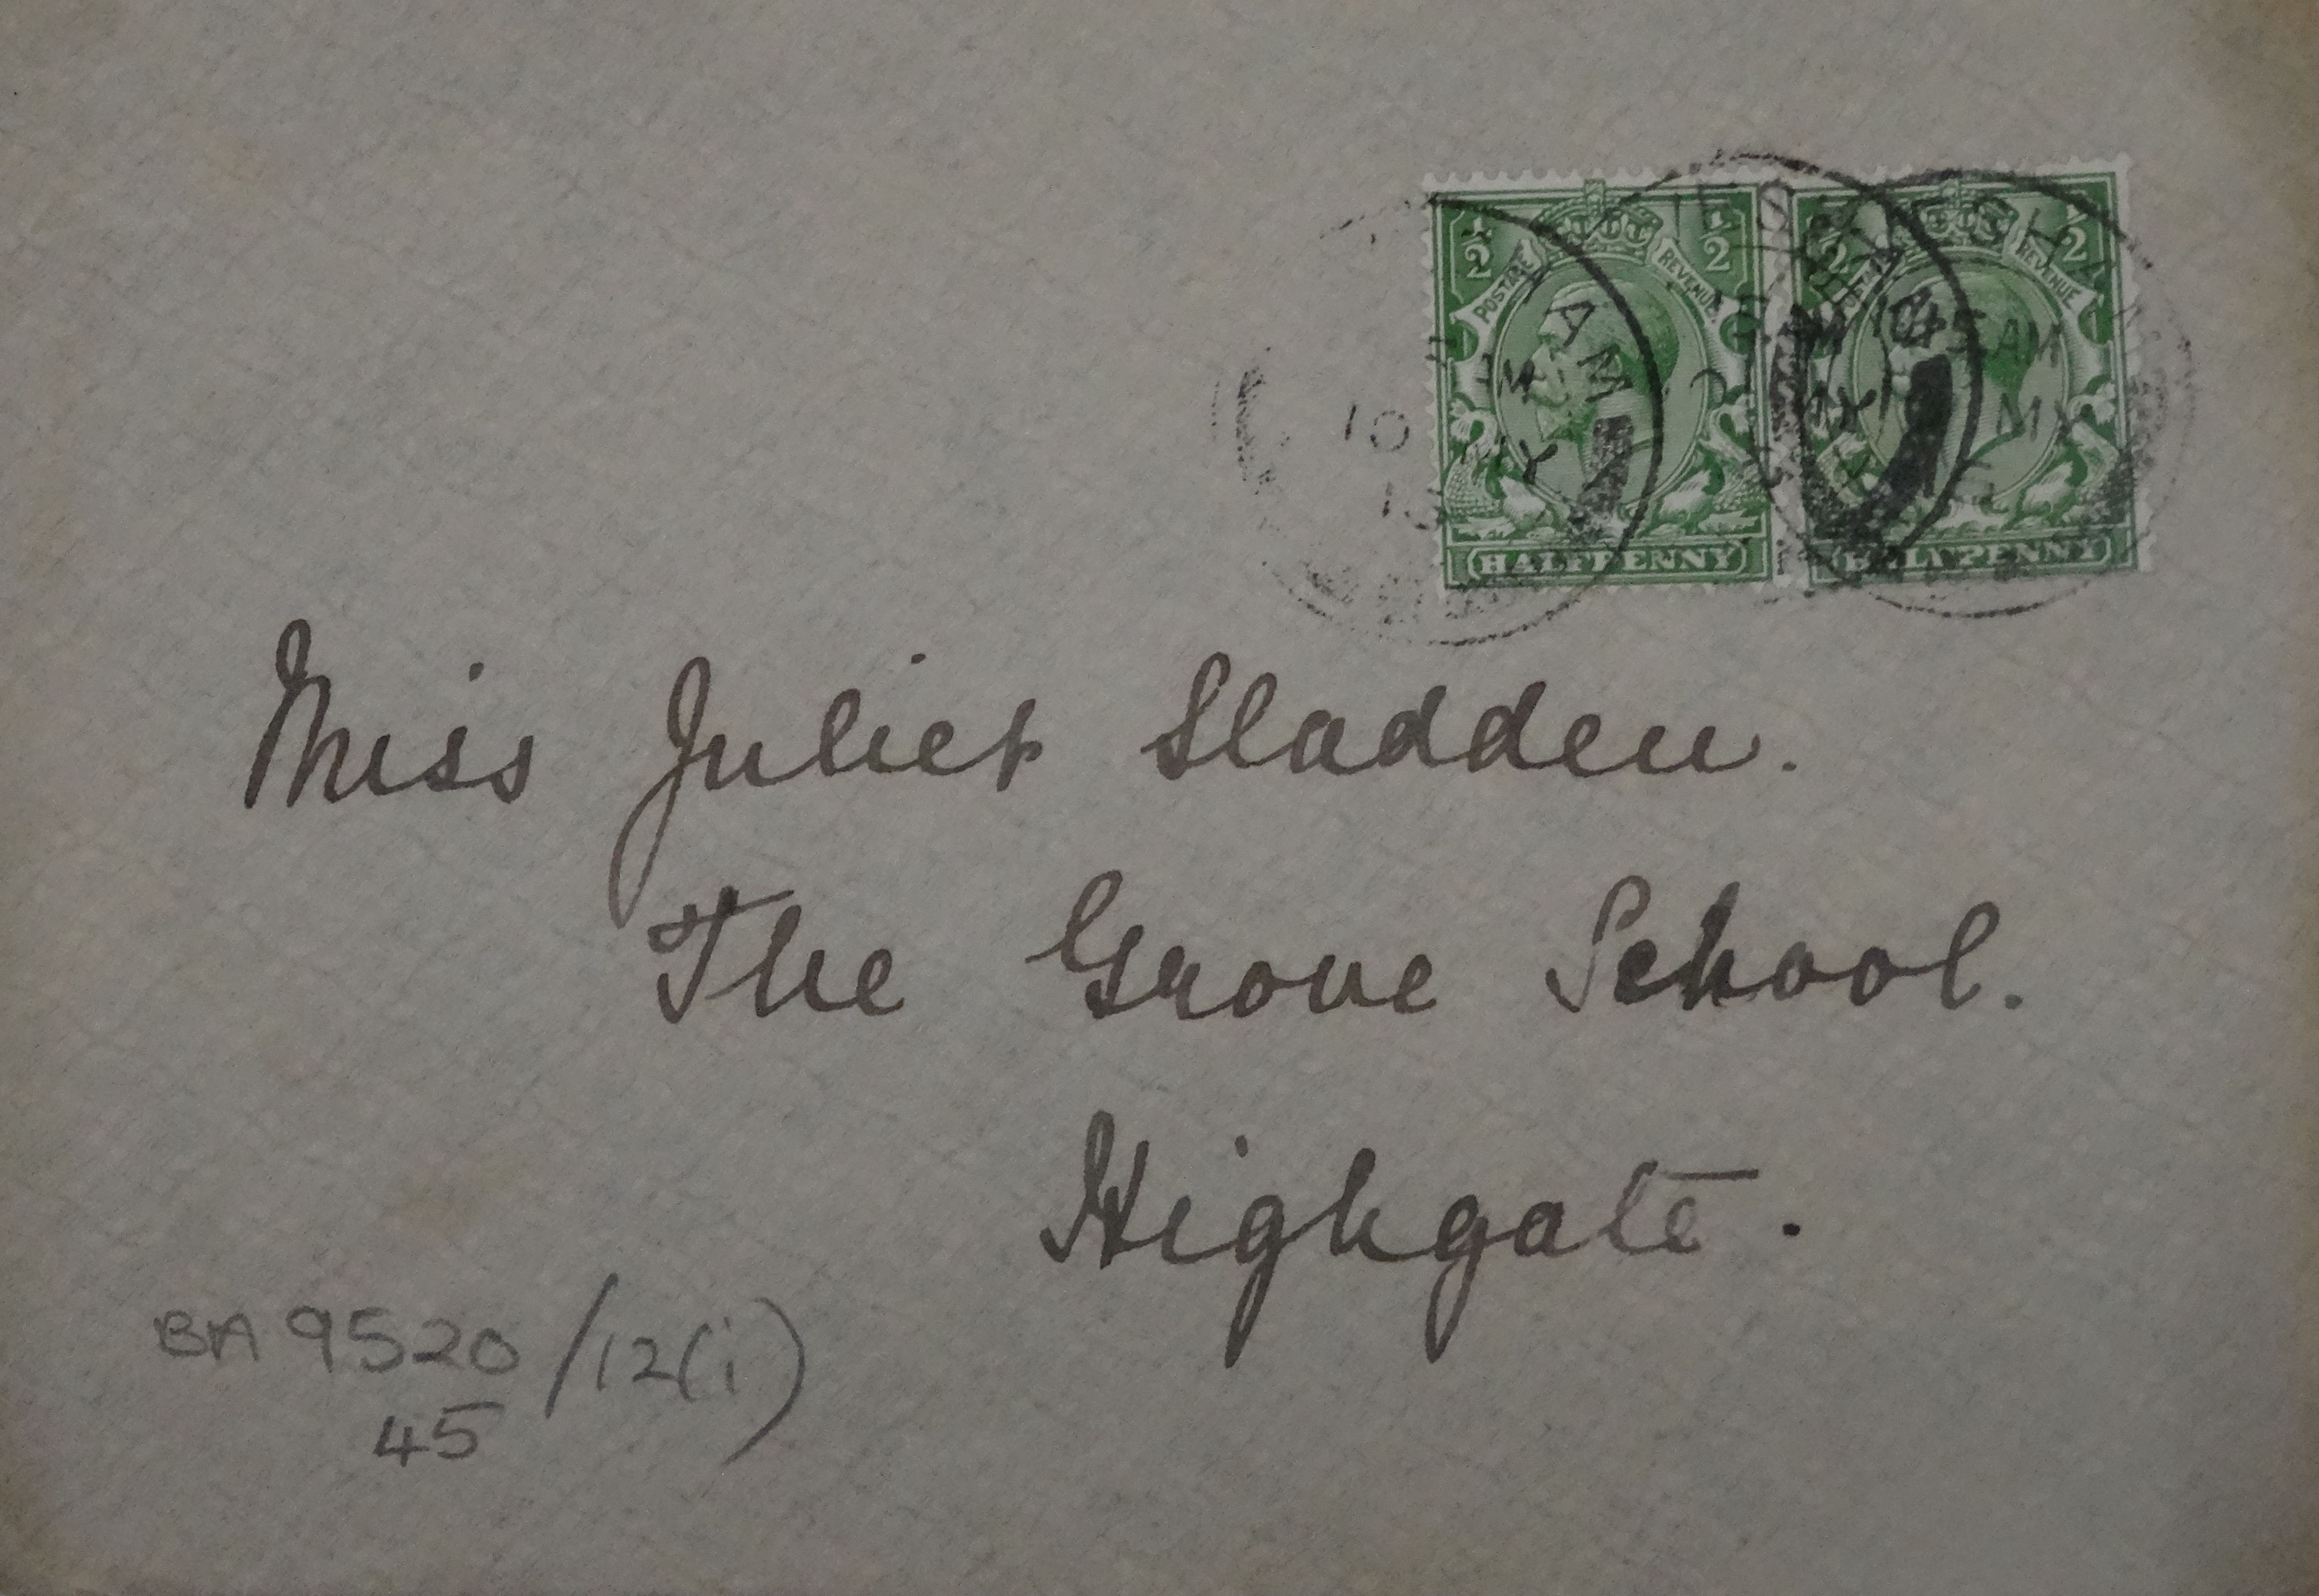 ½ POSTAGE REVENUE ½
½ POSTAGE REVENUE ½
AM
AM
MY
10
HALFPENNY
HALFPENNY
Miss Juliet Sladden.
The Grove School.
Highgate.
BA 9520/12(i)
45